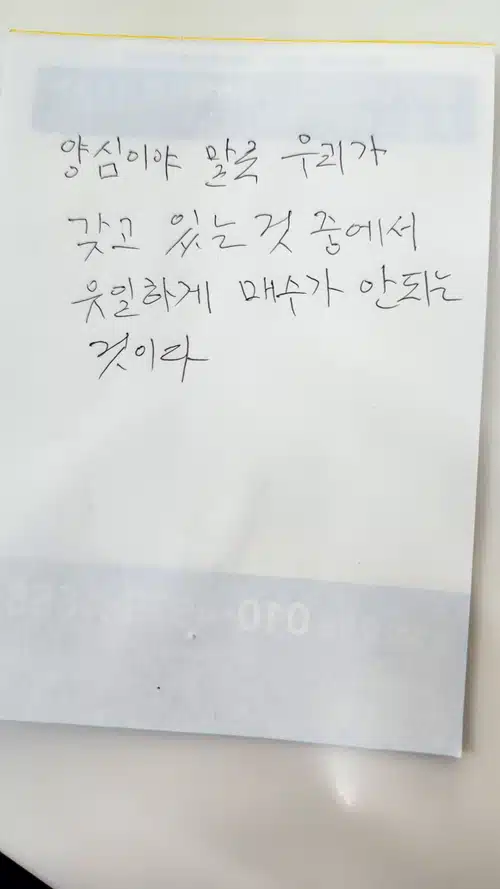 양심이야 말로 우리가
갖고 있는 것 중에서
유일하게 매수가 안되는
것이다
010